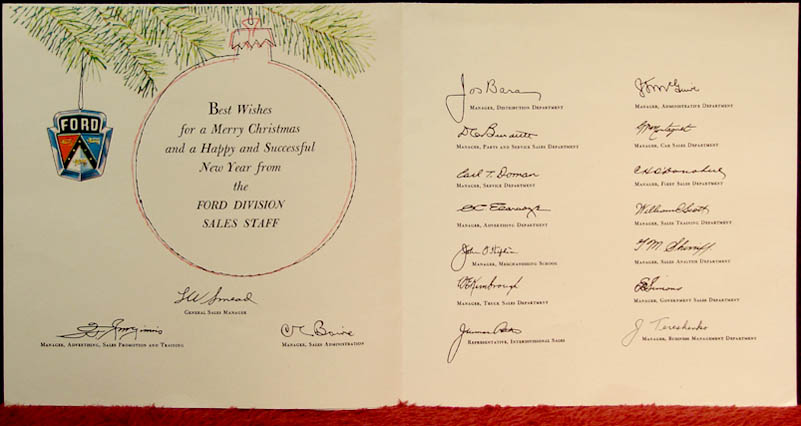 FORD
Best Wishes
for a Merry Christmas
and a Happy and Successful
New Year from
the
FORD DIVISION
SALES STAFF
L W Smead
General Sales Manager
Manager, Advertising, Sales Promotion and Training
Manager, Sales Administration
Jos Baran
Manager, Distribution Department
D C Burnett
Manager, Parts and Service Sales Department
Carl T. Doman
Manager, Service Department
Manager, Advertising Department
John O
Manager, Merchandising School
Kimbrough
Manager, Truck Sales Department
Representative, Interdivisional Sales
Manager, Administrative Department
Manager, Car Sales Department
C H O'Donahue
Manager, Fleet Sales Department
William Scott
Manager, Sales Training Department
Manager, Sales Analysis Department
Simons
Manager, Government Sales Department
J Tereshenko
Manager, Business Management Department